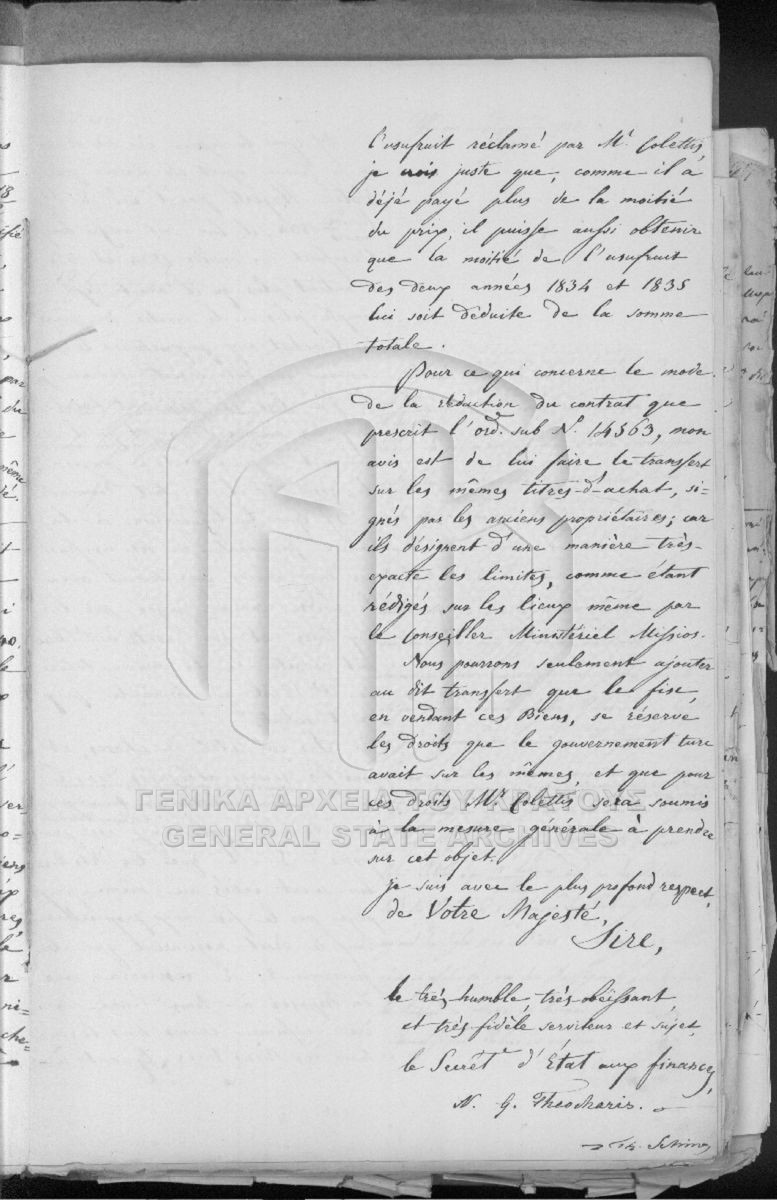 l'usufruit réclamé par Mr. Colettis,
je crois juste que, comme il a
déjà payé plus de la moitié
du prix, il puisse aussi obtenir
que la moitié de l'usufruit
des deux années 1834 et 1835
lui soit déduite de la somme
totale.
Pour ce qui concerne le mode
de la rédaction du contrat que
prescrit l'ord. sub N. 14563, mon
avis est de lui faire le transfert
sur les mêmes titres-d'achat, si-
gnés par les anciens propriétaires; car
ils désignent d'une manière très-
exacte les limites, comme étant
rédigés sur les lieux même par
le Conseiller Ministériel Missios.
Nous pourrons seulement ajouter
au dit transfert que le fisc,
en vendant ces Biens, se réserve
les droits que le gouvernement turc
avait sur les mêmes, et que pour
ces droits Mr. Colettis sera soumis
à la mesure générale à prendre
sur cet objet.
je suis avec le plus profond respect,
de Votre Majesté,
Sire,
le très humble, très obéissant
et très fidèle serviteur et sujet,
le Secrét. d'État aux finances,
N. G. Theocharis.
ΓΕΝΙΚΑ ΑΡΧΕΙΑ ΤΟΥ ΚΡΑΤΟΥΣ
GENERAL STATE ARCHIVES